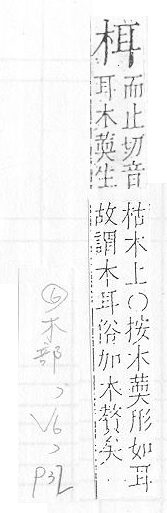 栮
而止切音
耳木䓴生
枯木上〇按木䓴形如耳
故謂木耳俗加木贅矣
⑥木部、V6、P32